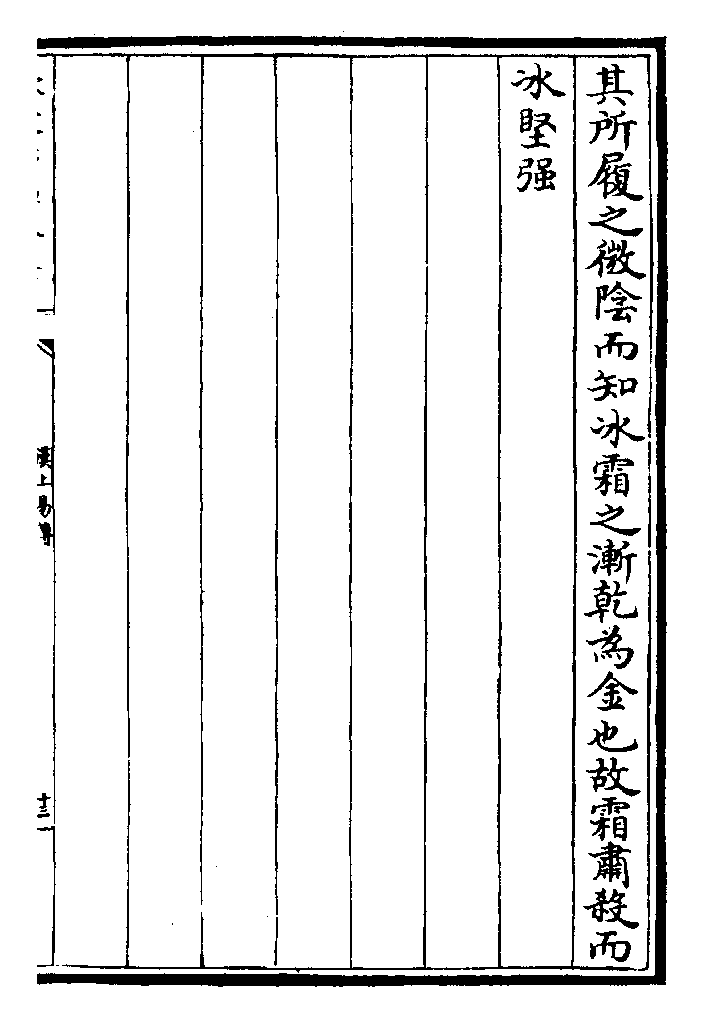 其所履之微陰而知冰霜之漸乾為金也故霜肅殺而
冰堅强
漢上易傳
十三